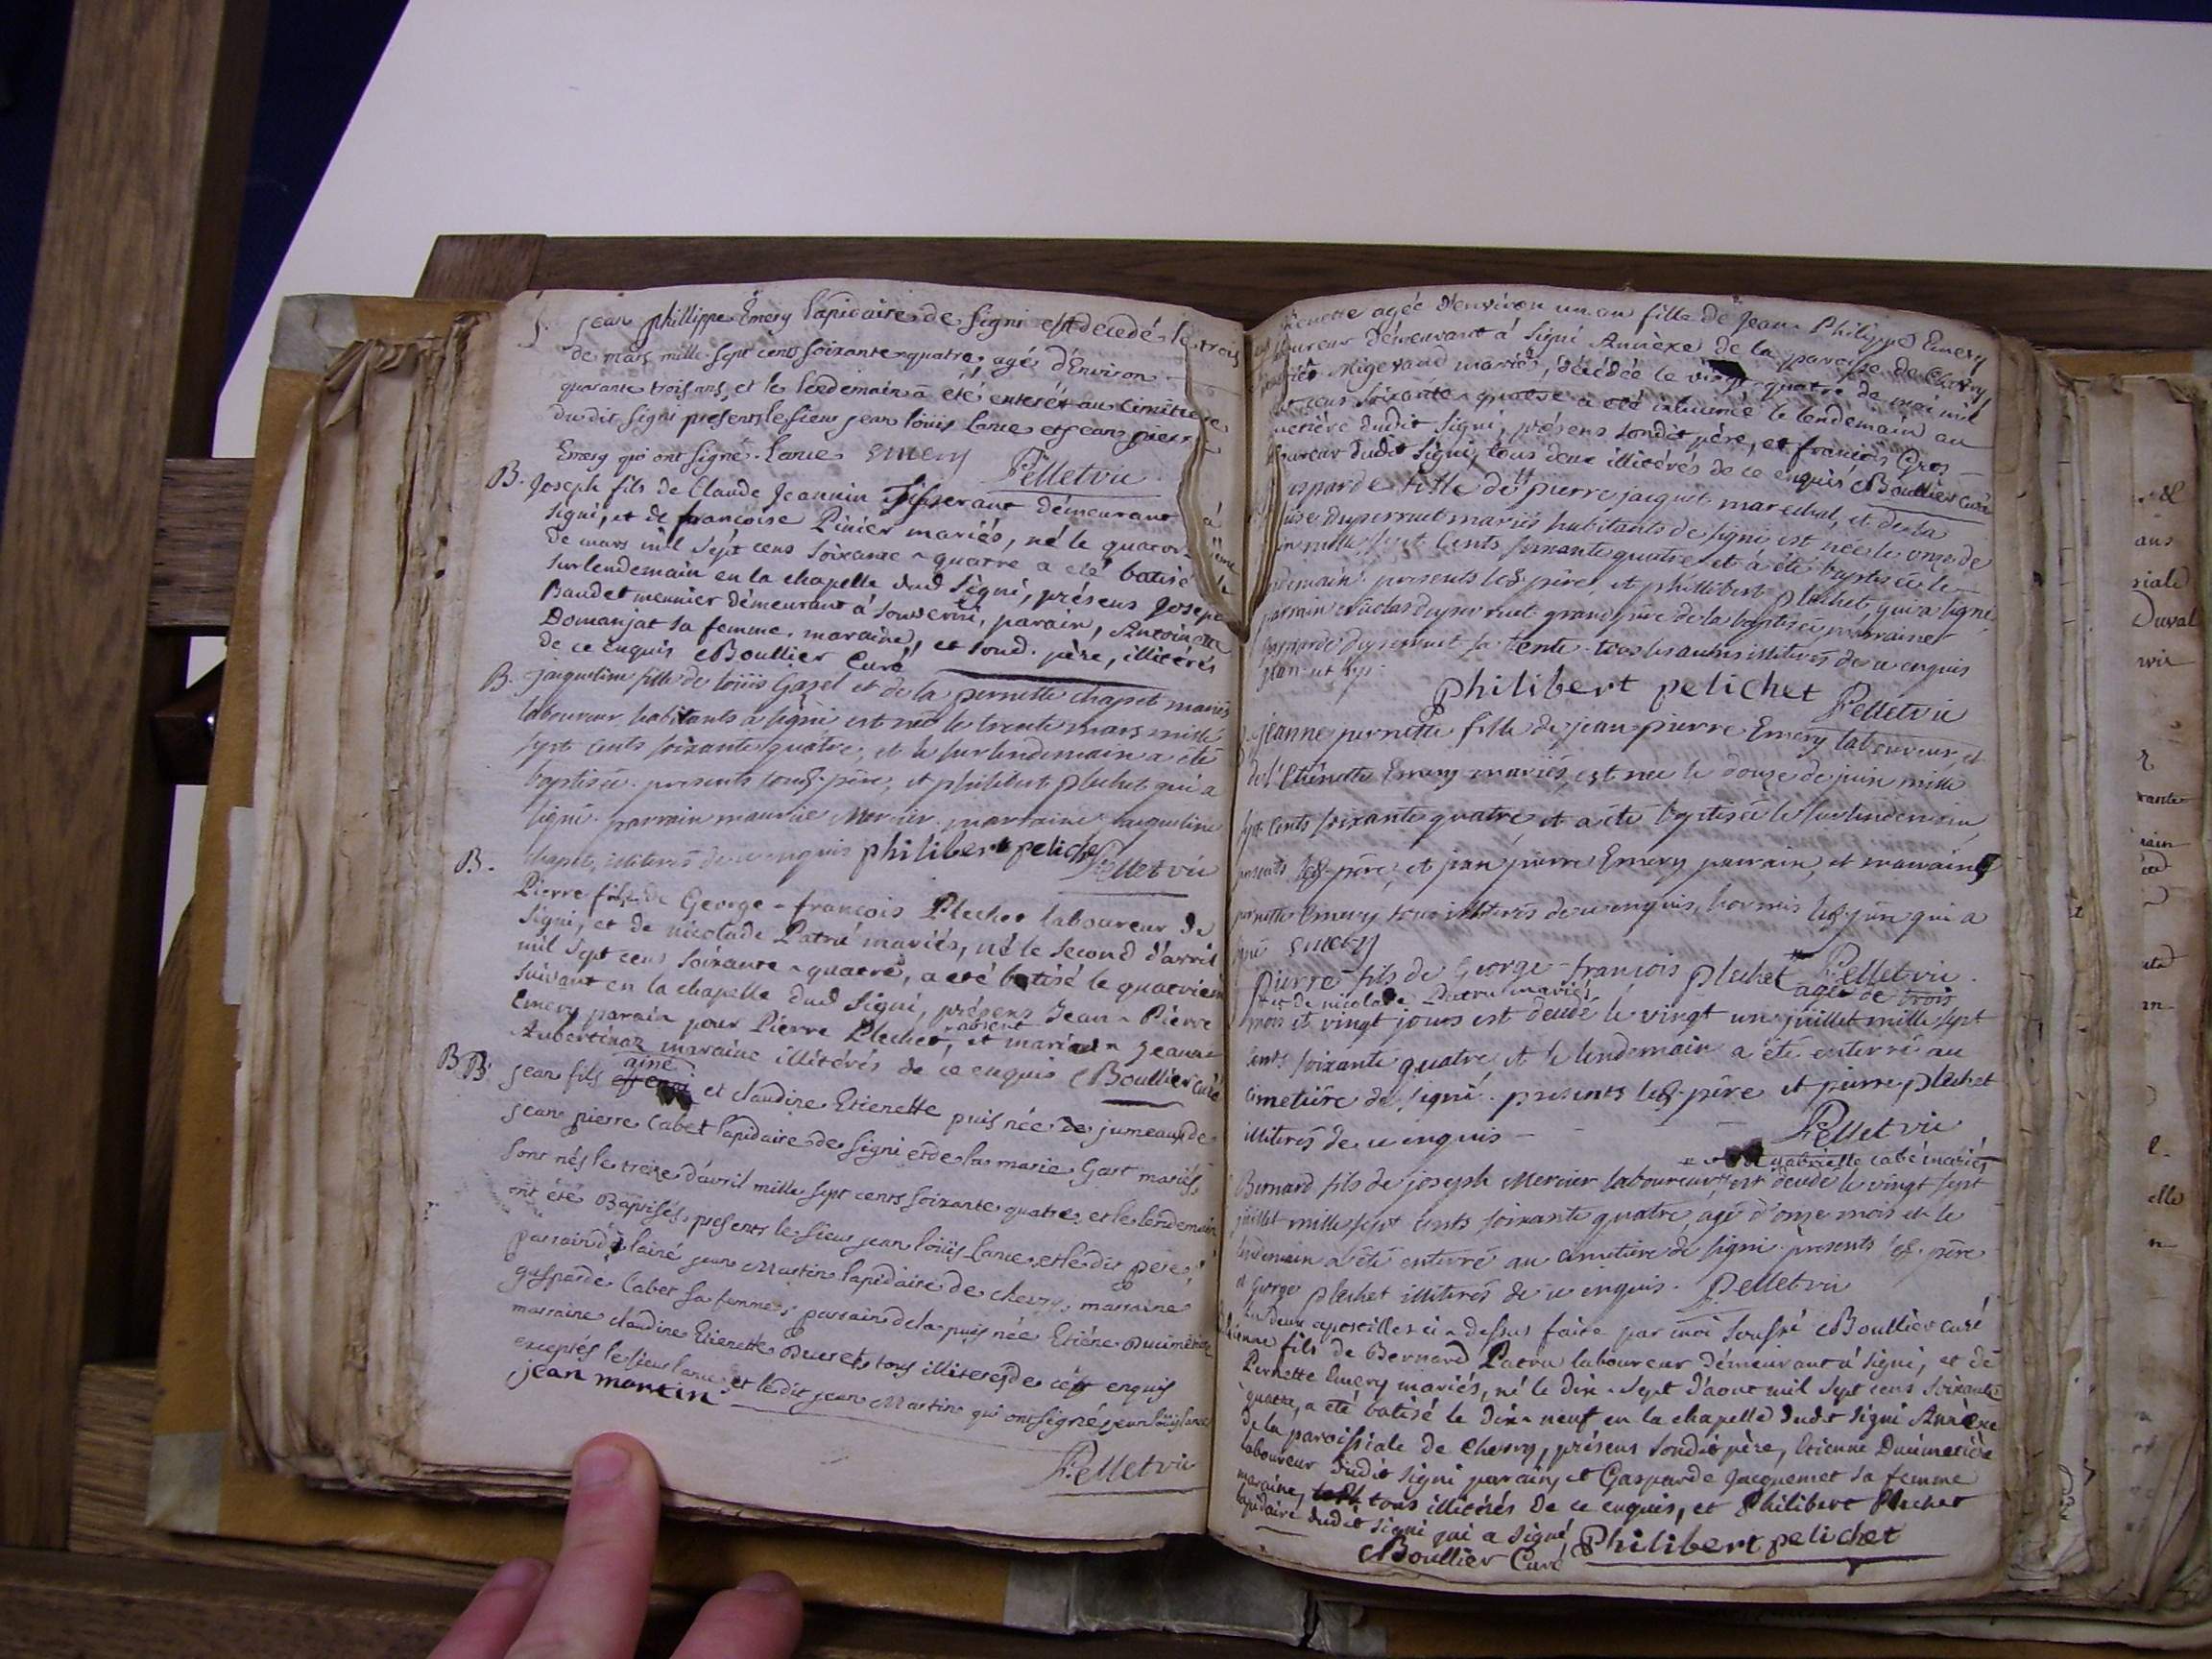 S. jean phillippe Emery lapidaire de signi est decedé le trois
de mars mille sept cents soixante quatre, agé d'Environ
quarante trois ans, et le lendemain a été enterré au cimetiere
du dit signi presents le sieur jean loüis Lance et jean pierre
Emery qui ont signé. Lance Emery Pelletvic
B. Joseph fils de Claude Jeannin Tisserant démeurant à
Signi, et de françoise Pinier mariés, né le quatorzieme
de mars mil sept cens soixante-quatre a été batisé le
surlendemain en la chapelle dud Signi, présens Joseph
Baudet meunier démeurant á Souverni, parain, Antoinette
Domanjat sa femme, maraine, et soud. père, illitérés
de ce enquis Boullier Curé
B. jaqueline fille de loüis Gazel et de la pernette chapet mariés
laboureur habitants a signi est née le trente mars mille
sept cents soixante quatre, et le surlendemain a été
baptisée. presents soud. père, et philibert plechet qui a
signé. parrain maurice Mercier, marraine jaqueline
chapet, illiterés de ce enquis philibert pelichet Pelletvic
B. Pierre fils de George-françois Plechet laboureur de
Signi, et de nicolade Patru mariés, né le second d'avril
mil sept cens soixante-quatre, a été batisé le quatrieme
suivant en la chapelle dud Signi, présens Jean-Pierre
Emery parain pour Pierre Plechet, absent et
Aubertinaz maraine illitérés de ce enquis Boullier Curé
B B. jean fils ainé et claudine Etienette puis née de jumeaux de
jean pierre Cabet lapidaire de signi et de la marie Gast mariés,
sont nés le treize d'avril mille sept cents soixante quatre, et le lendemain
ont été Baptisés, presents le sieur jean loüis Lance, et le dit pere.
parrain de lainé jean Martin lapidaire de chevry, marraine
gasparde Cabet sa femme; parrain de la puis née Etiéne Ducimetiere
marraine claudine Etienette Ducret, tous illiterés de ce enquis
exceptés le sieur lance, et le dit jean Martin qui ont signés, jean loüis lance
jean martin
Pelletvic
agée d'environ un an fille de Jean-Philippe Emery
laboureur démeurant á Signi Annèxe de la paroisse de Chevry
Migerand mariés, décédée le vingt-quatre de mai mil
sept cens soixante-quatre a été inhumée le lendemain au
cimetière dudit Signi, présens soudit père, et francois Gros
laboureur dudit Signi, tous deux illitérés de ce enquis Boullier Curé
gasparde fille de pierre jacquet marechal, et de la
duperruet mariés habitants de signi est née le onze de
juin mille sept cents soixante quatre et a été baptisée le
lendemain. presents led. père, et phillibert plechet, qui a signé,
parrain nicolas duperruet grand père de la baptisée, marraine
gasparde duperruet sa tente. tous les autres illiterés de ce enquis
philibert pelichet Pelletvic
jeanne pernette fille de jean pierre Emery laboureur, et
de l'Etienette Emery mariés, est née le douze de juin mille
sept cents soixante quatre, et a été baptisée le surlendemain,
presents led. père, et jean pierre Emery parrain, et marraine
pernette Emery tous illiterés de ce enquis, hormis led. père qui a
signé Emery
Pelletvic
Pierre fils de George-françois plechet agé de trois
et de nicolade Patru mariés
mois et vingt jours est decedé le vingt un juillet mille sept
cents soixante quatre, et le lendemain a été enterré au
cimetière de signi. presents led. père et pierre plechet
illiterés de ce enquis
Pelletvic
gabrielle cabé mariés
Bernard fils de joseph Mercier laboureur est decedé le vingt sept
juillet mille sept cents soixante quatre, agé d'onze mois et le
lendemain a été enterré au cimetiere de signi. presents led. père
et George plechet illiterés de ce enquis. Pelletvic
Les deux apostilles ci-dessus faite par moi soussigné Boullier curé
Etienne fils de Bernard Patru laboureur démeurant á Signi, et de
Pernette Emery mariés, né le dix-sept d'aout mil sept cens soixante
quatre, a été batisé le dix-neuf en la chapelle dudit Signi Annèxe
de la paroissiale de Chevry, présens soudit père, Etienne Ducimetière
laboureur dudit Signi parain, et Gasparde Jacquemet sa femme
maraine, tous illitérés de ce enquis, et Philibert Plechet
lapidaire dudit Signi qui a signé
Boullier Curé Philibert pelichet
ans
Duval
elle